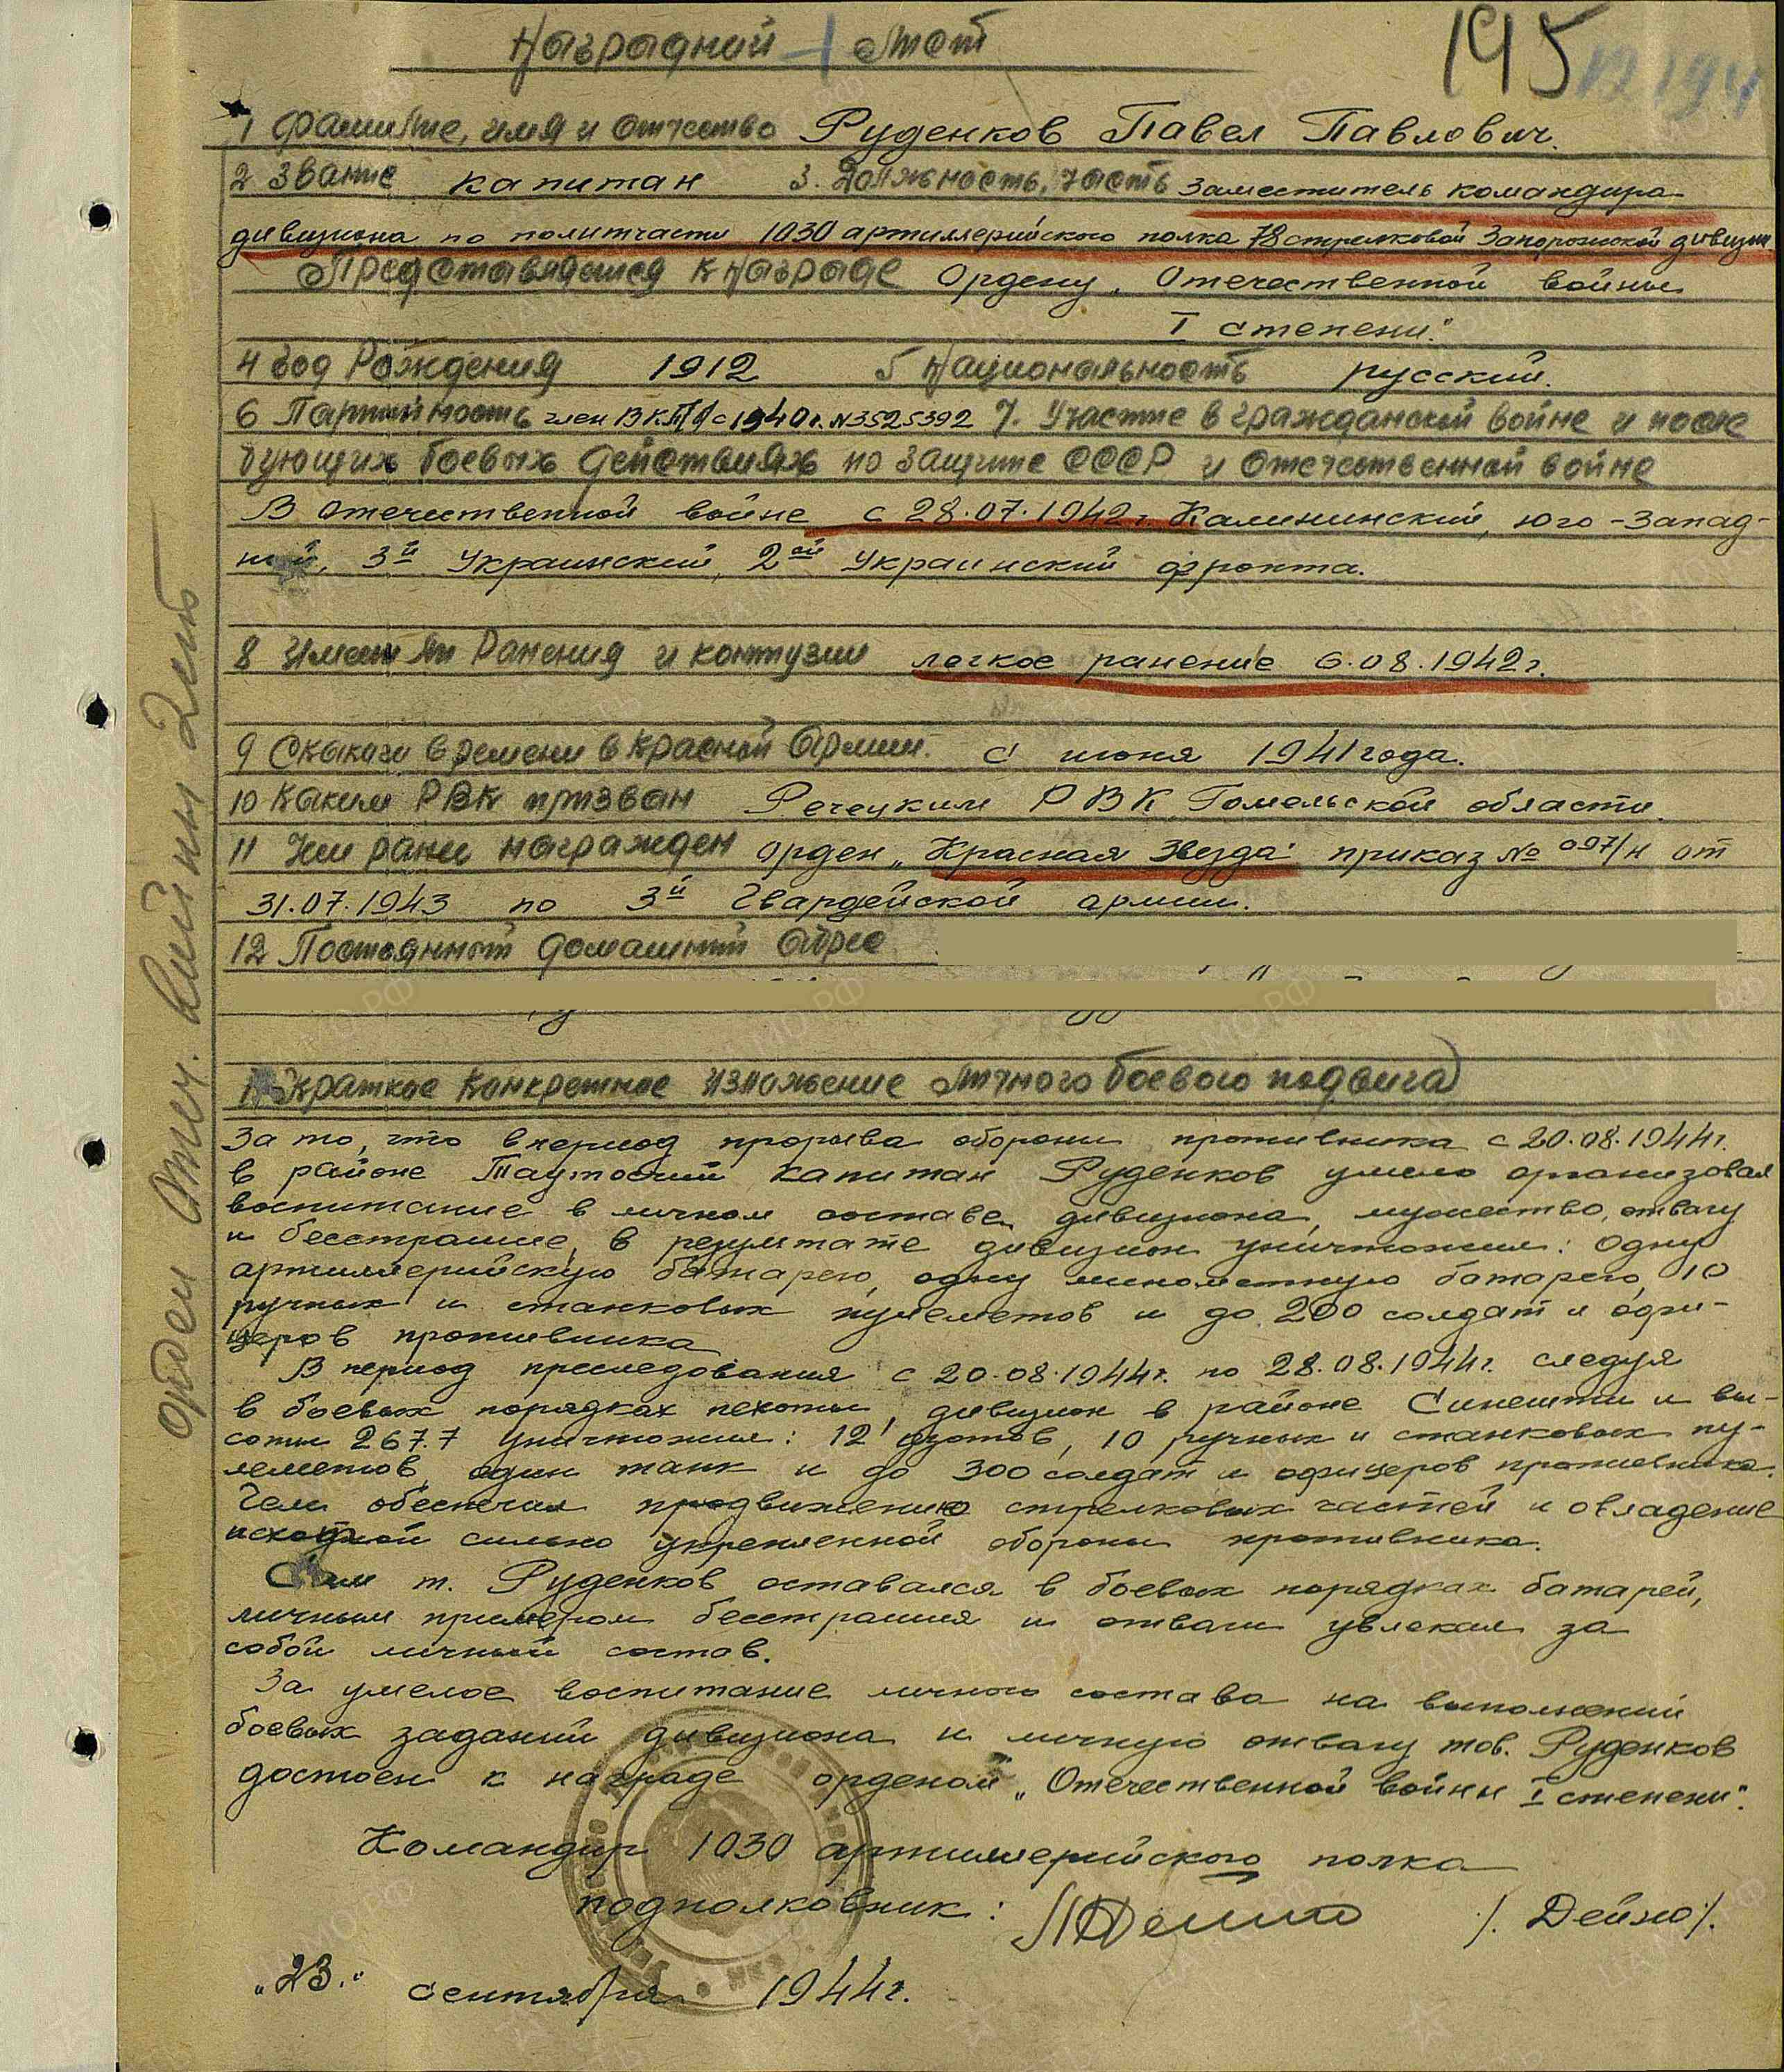 Наградной лист
195
194
1 Фамилие, имя и отчество Руденков Павел Павлович.
2 Звание капитан 3. Должность, часть заместитель командира
дивизиона по политчасти 1030 артиллерийского полка 78 стрелковой Запорожской дивизии
Представляется к награде Ордену „Отечественной войны
I степени."
4 Год Рождения 1912 5 Национальность русский.
6 Партийность член ВКП(б) с 1940 г. №3525392 7. Участие в гражданской войне и после
дующих боевых действиях по защите СССР и отечественной войне
В Отечественной войне с 28.07.1942 г. Калининский, юго-запад-
ный, 3й Украинский, 2ой Украинский фронта.
8 Имеет ли Ранения и контузии легкое ранение 6.08.1942 г.
9 С какого времени в Красной Армии. с июня 1941 года.
10 Каким РВК призван Речецким РВК Гомельской области.
11 Чем ранее награжден орден „Красная Звезда" приказ № 097/н от
31.07.1943 по 3й Гвардейской армии.
12 Постоянный домашний адрес
Краткое конкретное изложение личного боевого подвига
За то, что в период прорыва обороны противника с 20.08.1944 г.
в районе капитан Руденков умело организовал
воспитание в личном составе дивизиона, мужество, отвагу
и бесстрашие, в результате дивизион уничтожил: одну
артиллерийскую батарею, одну минометную батарею, 10
ручных и станковых пулеметов и до 200 солдат и офи-
церов противника
В период преследования с 20.08.1944 г. по 28.08.1944 г. следуя
в боевых порядках пехоты, дивизион в районе Синешти и вы-
соты 267.7 уничтожил: 12 дзотов, 10 ручных и станковых пу-
леметов, один танк и до 300 солдат и офицеров противника.
Чем обеспечил продвижению стрелковых частей и овладение
исходной сильно укрепленной обороны противника.
Сам т. Руденков оставался в боевых порядках батарей,
личным примером бесстрашия и отваги увлекал за
собой личный состав.
За умелое воспитание личного состава на выполнений
боевых заданий дивизиона и личную отвагу тов. Руденков
достоен к награде орденом „Отечественной войны I степени".
Командир 1030 артиллерийского полка
подполковник: /. Дейно /.
„23." сентября 1944 г.
Орден Отеч. Войны 2 степ